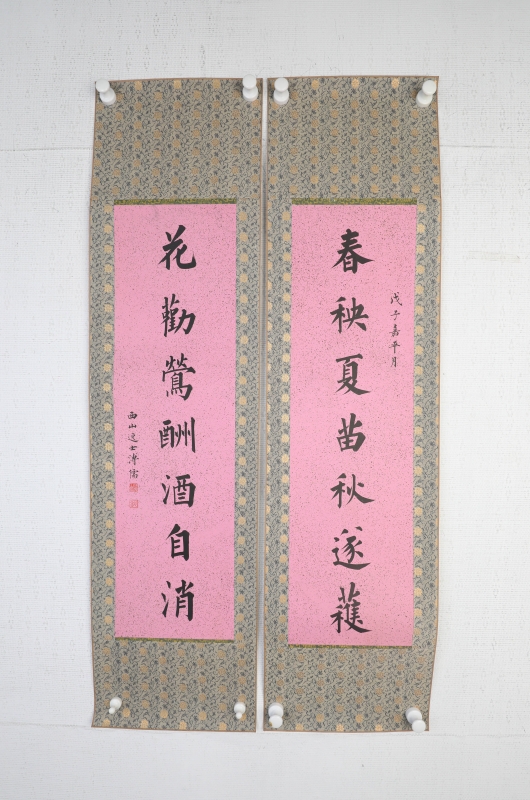 春秧夏苗秋遂穫
戊子嘉平月
花勸鶯酬酒自消
西山逸士溥儒